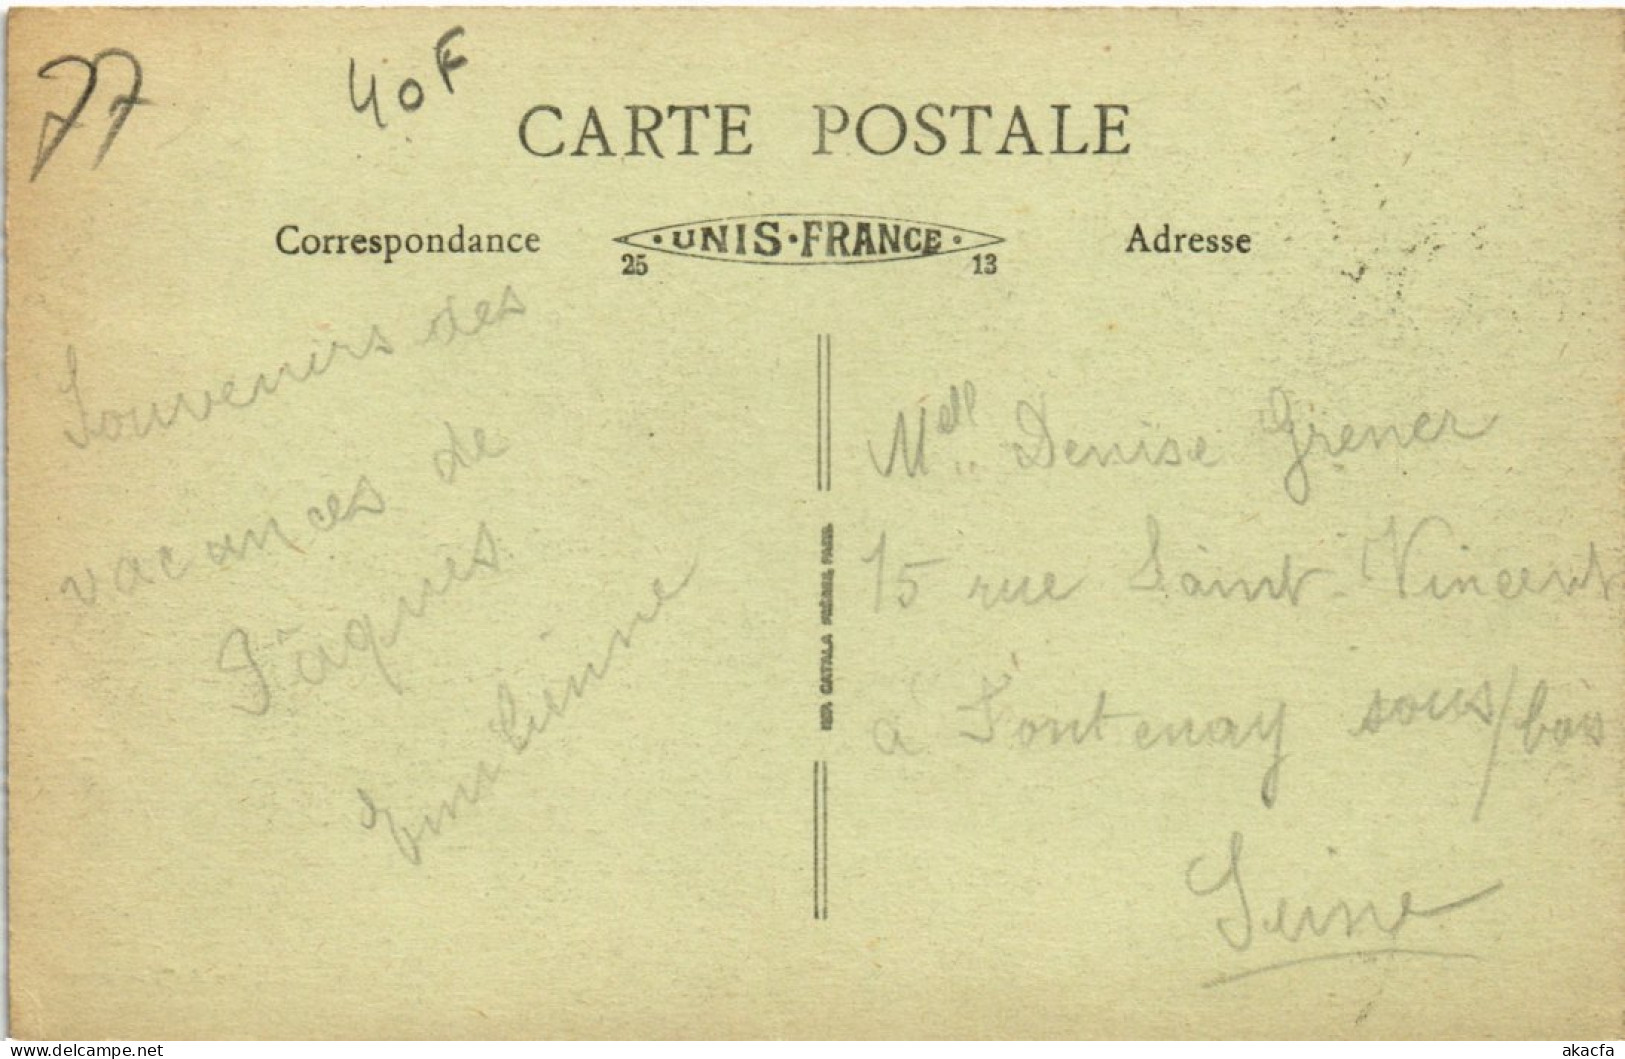 77
40F
CARTE POSTALE
Correspondance
· UNIS · FRANCE ·
25 13
Adresse
Souvenirs des
vacances de
Pâques
Emilienne
IMP. CATALA FRÈRES, PARIS
Mell Denise Grener
15 rue Saint-Vincent
à Fontenay sous/bois
Seine
www.delcampe.net
akacfa